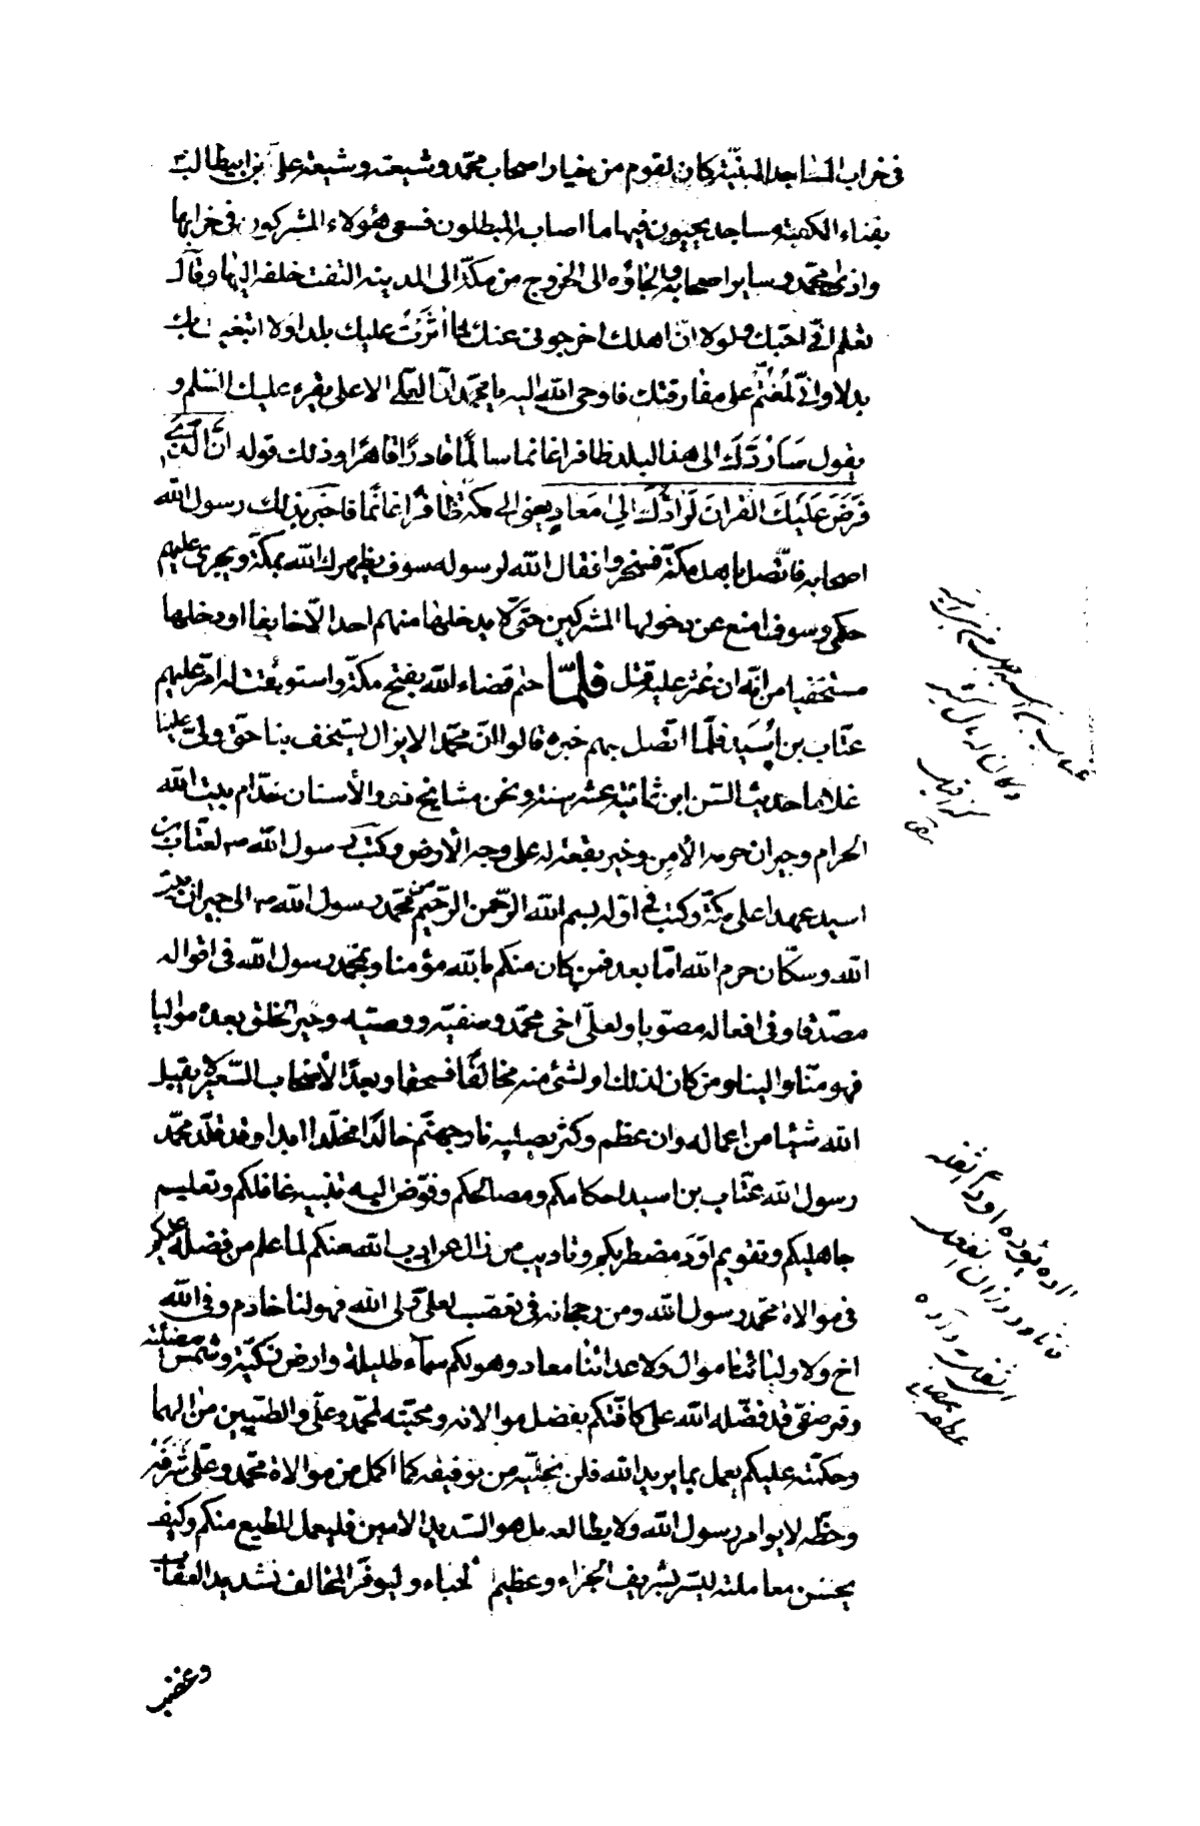 فى خراب المساجد المبنيّة كان لقوم من خيار اصحاب محمّد وشيعته وشيعة علىّ بن ابيطالب
بفناء الكعبة مساجد يحيون فيها ما اصابه المبطلون فسعى هؤلاء المشركون فى خرابها
واذى محمّد وساير اصحابه والجاؤه الى الخروج من مكّة الى المدينه التفت خلفه اليها وقال
تعلم انّى احبّك ولولا انّ اهلك اخرجونى عنك لما اثَرتُ عليك بلدا ولا ابتغيت بك
بدلا وانّى لمُغتمّ على مفارقتك فاوحى الله اليه يا محمّد انّ العلى الاعلى يقرء عليك السّلم و
يقول سَاَرُدّكَ الى هذا البلد ظافرا غانما سالمًا قادرًا قاهرًا وذلك قوله انَّ الَّذى
فَرَضَ عَلَيكَ القرانَ لَرادُّكَ الِى مَعادٍ يعنى الى مكّة ظافرًا غانمًا فاخبر بذلك رسول الله
اصحابه فاتّصل باهل مكّة فسخروا فقال الله لرسوله سوف يظهرك الله بمكّة ويجرى عليهم
حكمى وسوف امنع عن دخولها المشركين حتّى لا يدخلها منهم احد الّا خايفا او دخلها
مستخفيا من انّه ان عُثر عليه قتل فلمّا حتم قضاء الله بفتح مكّة واستوسقت له امّر عليهم
عتّاب بن اُسَيد فلمّا اتّصل بهم خبره قالوا انّ محمّدا لا يزال يستخفّ بنا حتّى ولّى علينا
غلاما حديث السّن ابن ثمانية عشر سنة ونحن مشايخ ذو والأسنان خدّام بيت الله
الحرام وجيران حرمه الأمن وخير بقعة له على وجه الأرض وكتب رسول الله ص لعتّاب بن
اسيد عهدا على مكّة وكتب فى اوّله بسم الله الرّحمن الرّحيم من محمّد رسول الله ص الى جيران بيت
الله وسكّان حرم الله امّا بعد فمن كان منكم بالله مؤمنا وبمحمّد رسول الله فى اقواله
مصدّقا وفى افعاله مصوّبا ولعلىّ اخى محمّد وصفيّه ووصيّه وخير الخلق بعده مواليا
فهو منّا والينا ومن كان لذلك او لشئ منه مخالفًا فسحقا وبعدًا لأصحاب السّعير لا يقبل
الله شيئا من اعماله وان عظم وكثر يصليه نار جهنّم خالدًا مخلّدا ابدا وقد قلّد محمّد
رسول الله عتّاب بن اسيد احكامكم ومصالحكم وفوّض اليه تنبيه غافلكم وتعليم
جاهلكم وتقويم اوَد مضطربكم وتاديب من زال عن ادب الله منكم لما علم من فضله عليكم
فى موالاة محمّد رسول الله ومن رجحانه فى تعصّب لعلى ولى الله فهو لنا خادم وفى الله
اخ ولاوليائنا موال ولاعدائنا معاد وهو لكم سمآء ظليلة وارض زكيّة وشمس مضيئة
وقمر مضئ قد فضّله الله على كافّتكم بفضل موالاته ومحبّته لمحمّد وعلىّ والطّيّبين من الهما
وحكّمه عليكم يعمل بما يريد الله فلن يخلّيه من توفيقه كما اكمل من موالاة محمّد وعلىّ شرفه
وحظّه لا يوامر رسول الله ولا يطالعه بل هو السّديد الامين فليعمل المطيع منكم وليف
بحسن معاملته ليسرّ بشريف الجزاء وعظيم الحباء وليوقّر المخالف بشديد العقاب
وغضب